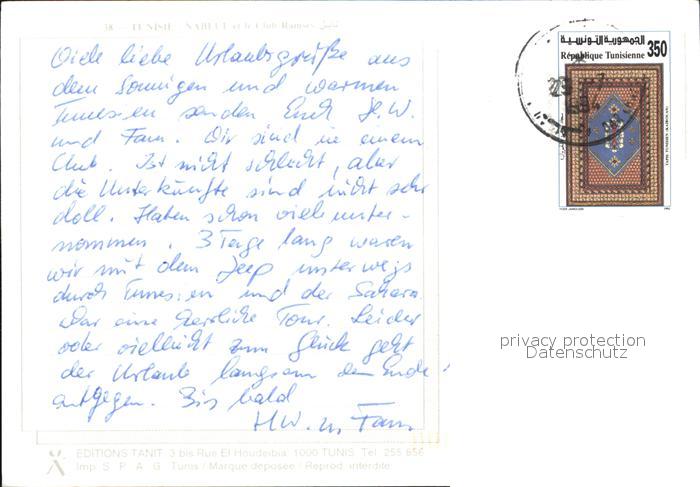 38 — TUNISIE - NABEUL et le Club Ramses نابل
Viele liebe Urlaubsgrüße aus
dem Sonnigen und warmen
Tunesien senden Euch H.W.
und Fam. Wir sind in einem
Club. Ist nicht schlecht, aber
die Unterkünfte sind nicht sehr
doll. Haben schon viel unter-
nommen. 3 Tage lang waren
wir mit dem Jeep unterwegs
durch Tunesien und der Sahara.
War eine herrliche Tour. Leider
oder vielleicht zum Glück geht
der Urlaub langsam dem Ende
entgegen. Bis bald
H.W. u. Fam
EDITIONS TANIT 3 bis Rue El Houdeibia 1000 TUNIS Tel. 255 856
Imp. S. P. A. G. Tunis / Marque déposée / Reprod. interdite
الجمهورية التونسية
République Tunisienne
350
privacy protection
Datenschutz